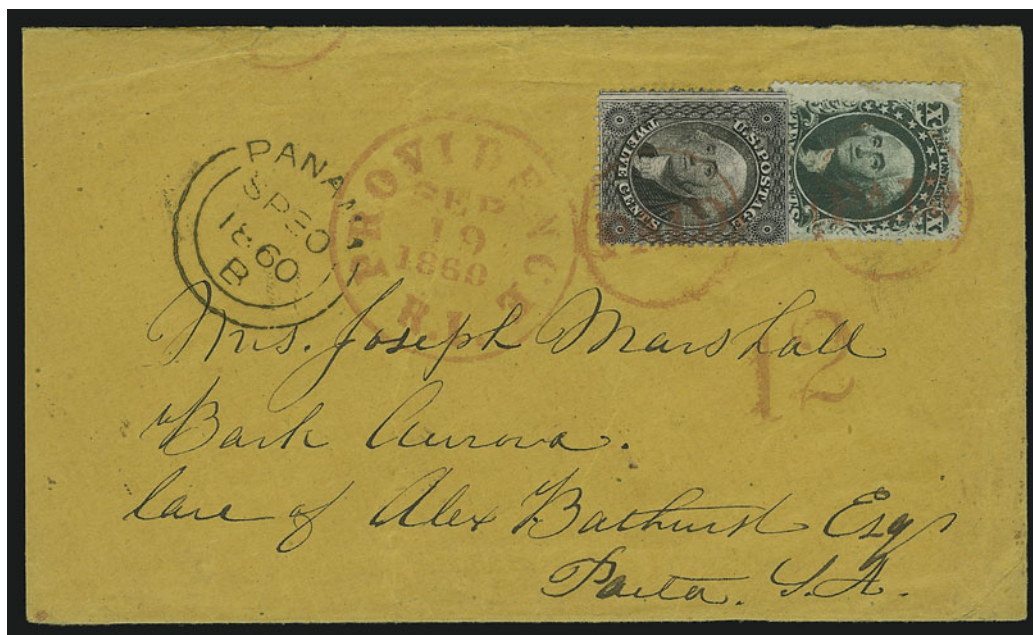 PANAMA
SP30
1860
B
PROVIDENCE R.I.
SEP
19
1860
U.S. POSTAGE
TWELVE CENTS
X X
PAID
PAID
12
Mrs. Joseph Marshall
Bark Aurora.
Care of Alex Bathurst Esqr
Paita. S.A.